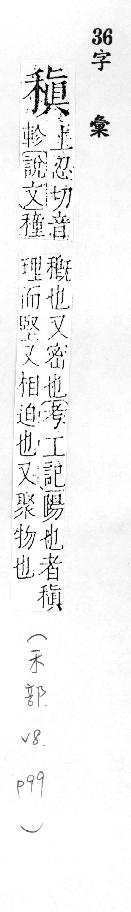 36
字彙
稹
止忍切音
軫說文種
穊也又密也考工記陽也者稹
理而堅又相迫也又聚物也
(禾部.
v8.
p99
)